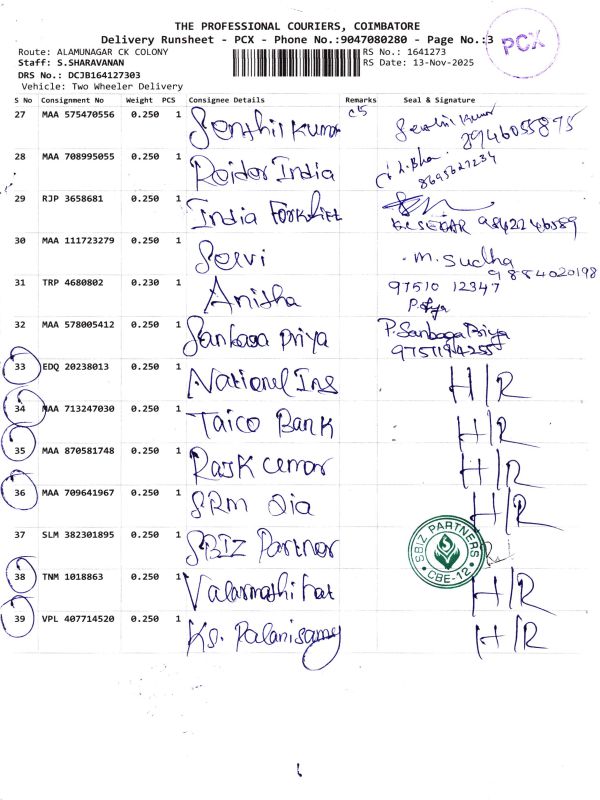 THE PROFESSIONAL COURIERS, COIMBATORE
Delivery Runsheet - PCX - Phone No.:9047080280 - Page No.:3
PCX
Route: ALAMUNAGAR CK COLONY RS No.: 1641273
Staff: S.SHARAVANAN RS Date: 13-Nov-2025
DRS No.: DCJB164127303
Vehicle: Two Wheeler Delivery
S No Consignment No Weight PCS Consignee Details Remarks Seal & Signature
27 MAA 575470556 0.250 1 Senthil Kumar Senthil Kumar
28 MAA 708995055 0.250 1 Roidor India
8695627234
29 RJP 3658681 0.250 1 India Forkliet
K.SEKAR 9842246589
30 MAA 111723279 0.250 1 Selvi M. Sudha
9884020198
31 TRP 4680802 0.230 1 Anitha 97510 12347
32 MAA 578005412 0.250 1 Sankaga Priya P. Sanbaga Priya
33 EDQ 20238013 0.250 1 Nationel Ins H/R
34 MAA 713247030 0.250 1 Taico Bank H/R
35 MAA 870581748 0.250 1 Rajkcemar H/R
36 MAA 709641967 0.250 1 SRM Dia H/R
37 SLM 382301895 0.250 1 SBIZ Partner SBIZ PARTNERS CBE-12
38 TNM 1018863 0.250 1 Valarmathi hat H/R
39 VPL 407714520 0.250 1 Ks. Palanisamy H/R